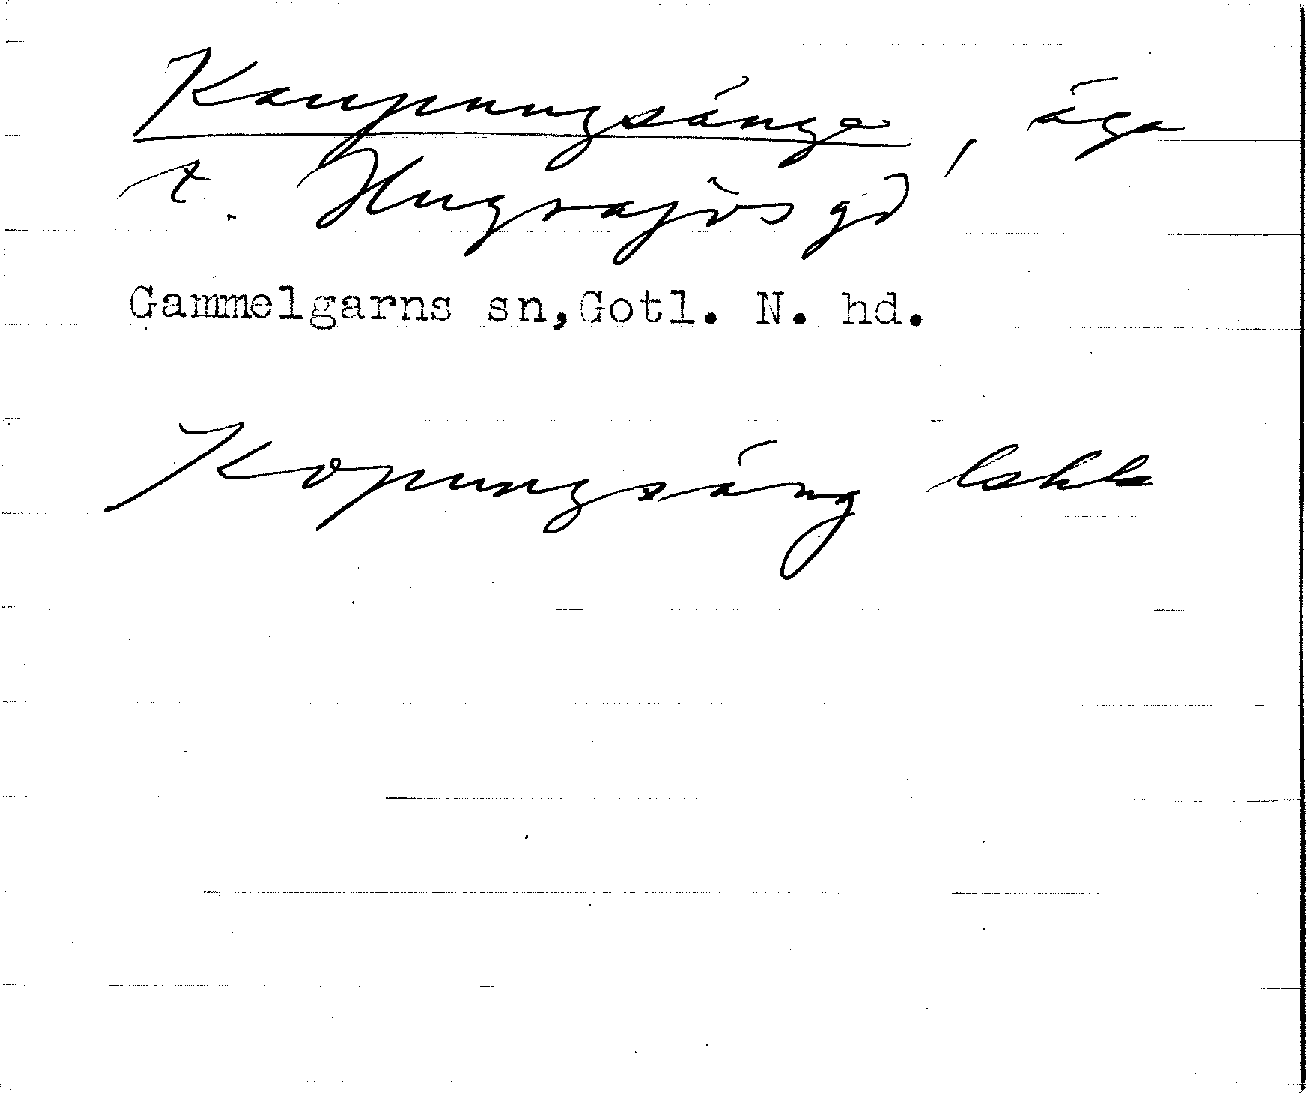 Kaupungsänge, äga
t. Hugrajvs gd
Gammelgarns sn,Gotl. N. hd.
Kopungsäng